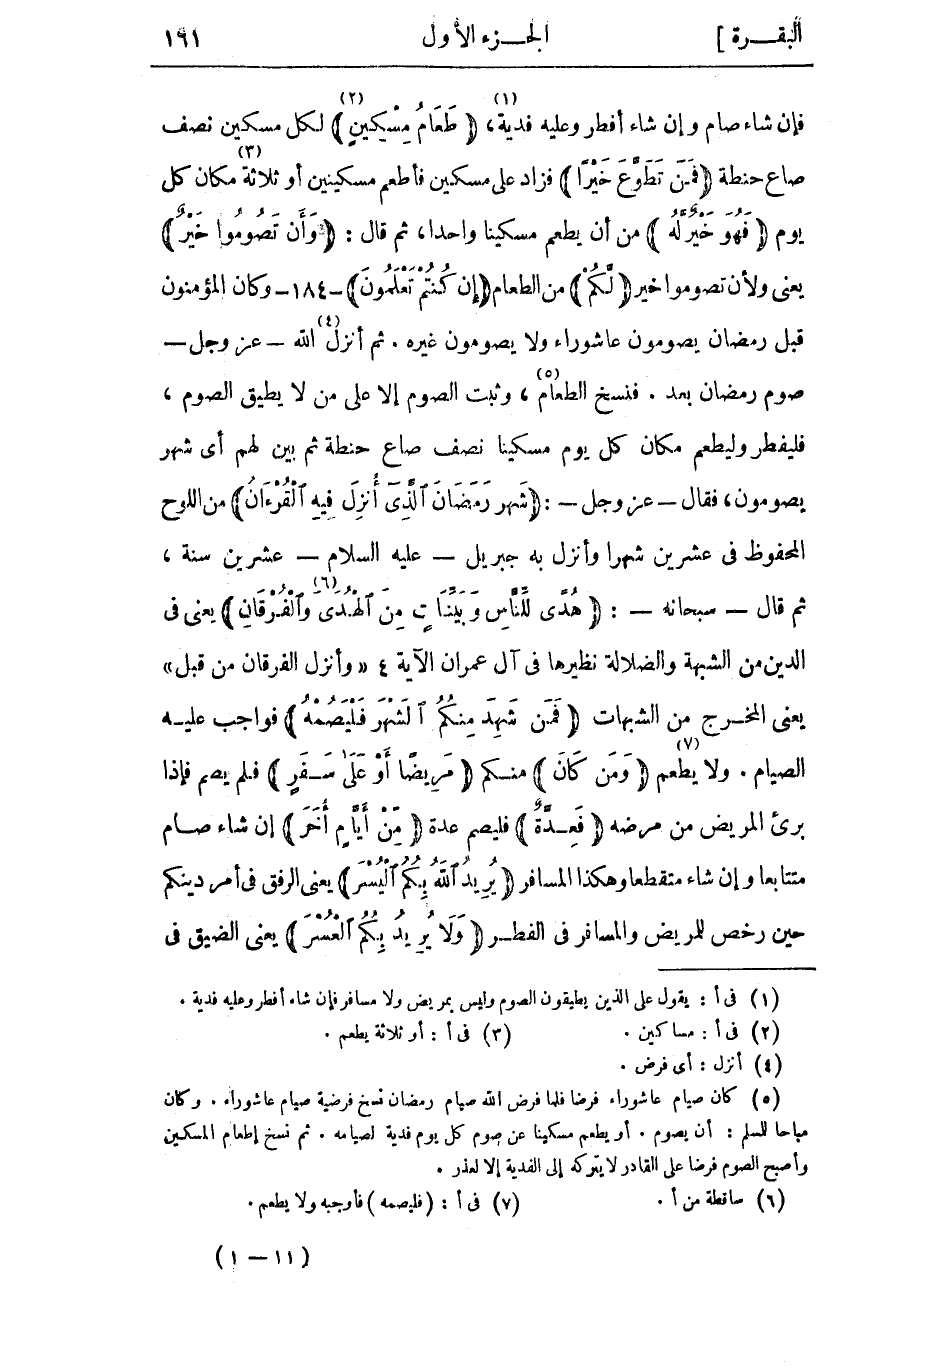 البقرة ] الجزء الأول ١٦١
فإن شاء صام وإن شاء أفطر وعليه فدية(١)، ﴿ طَعَامُ مِسْكِينٍ(٢) ﴾ لكل مسكين نصف
صاع حنطة ﴿ فَمَن تَطَوَّعَ خَيْرًا ﴾ فزاد على مسكين فأطعم مسكينين أو ثلاثة(٣) مكان كل
يوم ﴿ فَهُوَ خَيْرٌ لَّهُ ﴾ من أن يطعم مسكينا واحدا، ثم قال : ﴿ وَأَن تَصُومُوا خَيْرٌ ﴾
يعنى ولأن تصوموا خير ﴿ لَّكُمْ ﴾ من الطعام ﴿ إِن كُنتُمْ تَعْلَمُونَ ﴾ -١٨٤- وكان المؤمنون
قبل رمضان يصومون عاشوراء ولا يصومون غيره . ثم أنزل(٤) الله — عز وجل —
صوم رمضان بعد . فنسخ الطعام(٥) ، وثبت الصوم إلا على من لا يطيق الصوم ،
فليفطر وليطعم مكان كل يوم مسكينا نصف صاع حنطة ثم بين لهم أى شهر
يصومون، فقال — عز وجل — : ﴿ شَهْرُ رَمَضَانَ ٱلَّذِىٓ أُنزِلَ فِيهِ ٱلْقُرْءَانُ ﴾ من اللوح
المحفوظ فى عشرين شهرا وأنزل به جبريل — عليه السلام — عشرين سنة ،
ثم قال — سبحانه — : ﴿ هُدًى لِّلنَّاسِ وَبَيِّنَاتٍ مِنَ ٱلْهُدَىٰ(٦) وَٱلْفُرْقَانِ ﴾ يعنى فى
الدين من الشبهة والضلالة نظيرها فى آل عمران الآية ٤ «وأنزل الفرقان من قبل»
يعنى المخرج من الشبهات ﴿ فَمَن شَهِدَ مِنكُمُ ٱلشَّهْرَ فَلْيَصُمْهُ ﴾ فواجب عليه
الصيام . ولا يطعم(٧) ﴿ وَمَن كَانَ ﴾ منكم ﴿ مَرِيضًا أَوْ عَلَىٰ سَفَرٍ ﴾ فلم يصم فإذا
برئ المريض من مرضه ﴿ فَعِدَّةٌ ﴾ فليصم عدة ﴿ مِّنْ أَيَّامٍ أُخَرَ ﴾ إن شاء صام
متتابعا وإن شاء متقطعا وهكذا المسافر ﴿ يُرِيدُ ٱللَّهُ بِكُمُ ٱلْيُسْرَ ﴾ يعنى الرفق فى أمر دينكم
حين رخص للمريض والمسافر فى الفطر ﴿ وَلَا يُرِيدُ بِكُمُ ٱلْعُسْرَ ﴾ يعنى الضيق فى
(١) فى أ : يقول على الذين يطيقون الصوم وليس بمريض ولا مسافر فإن شاء أفطر وعليه فدية .
(٢) فى أ : مساكين . (٣) فى أ : أو ثلاثة يطعم .
(٤) أنزل : أى فرض .
(٥) كان صيام عاشوراء فرضا فلما فرض الله صيام رمضان نسخ فرضية صيام عاشوراء . وكان
مباحا للمسلم : أن يصوم . أو يطعم مسكينا عن صوم كل يوم فدية لصيامه . ثم نسخ إطعام المسكين
وأصبح الصوم فرضا على القادر لا يتركه إلى الفدية إلا لعذر .
(٦) ساقطة من أ . (٧) فى أ : ( فليصمه ) فأوجبه ولا يطعم .
(١ — ١١)